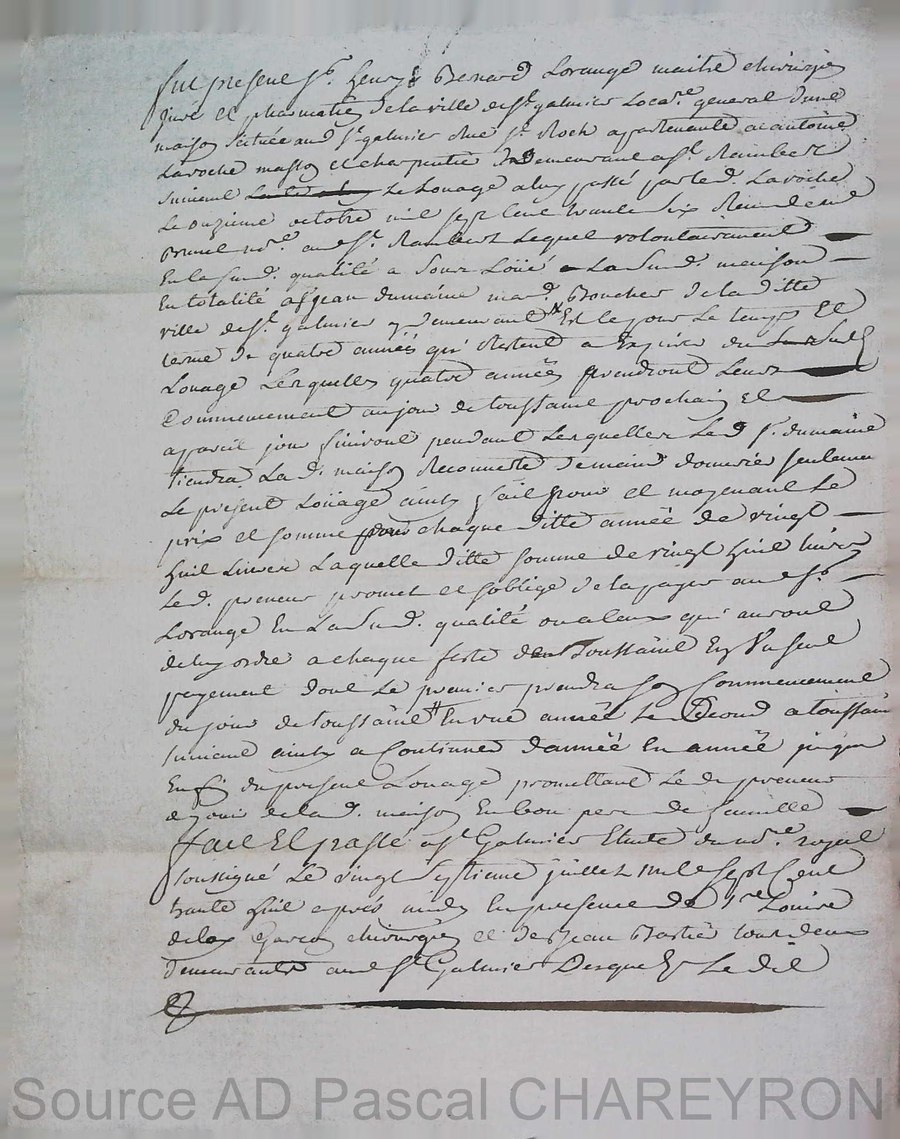 fut present Sr. henry Benard Lorange maitre chirurgien
juré et pharmatien de la ville de St. galmier Locare. general dune
maison scituée aud St. galmier rue St. Roch appartenante a antoine
Laroche masson et charpentier demeurant a St. Rambert
suivant Le Louage a luy passé par led. Laroche
Le onzieme octobre mil sept cent trante six Receu dend
Brunel nore. aud St. Rambert Lequel volontairement
En la sud. qualité a sous Loüé La sud. maison
En totalité a St jean dumaine mard. Boucher de la ditte
ville de St. galmier y demeurant Est le pour Le temps Et
terme de quatre années qui Restent a Expirer du susd
Louage Lesquelles quatre années prendront Leurs
Commencement au jour de toussaint prochain Et
a pareil jour finiront pendant Lesquelles Led Sr. dumaine
tiendra La d. maison
Le present Loüage ainsy fait pour et moyenant Le
prix et somme pour chaque ditte année de vingt
huit Livres Laquelle ditte somme de vingt huit livres
Led. preneur promet et soblige de la payer aud Sr.
Lorange En La sud. qualité ou a ceux qui auront
de luy ordre a chaque feste de Toussaint En Un seul
payement dont Le premier prendra son Commencement
du jour de toussaint En une année Le second a toussaint
suivant ainsy a Continuer dannéé En annéé jusqua
En fin du present Louage promettant Le d. preneur
de jouir de la d. maison En bon pere de famille
fait Et passé a St. Galmier Etude du nore. royal
soussigné Le vingt septieme juillet mil sept Cent
trante huit apres midy En presence de Sr. Louire
garcon chirurgien et de Sr jean Bastié tous deux
demeurants aud St. Galmier Lesque Le dit
Source AD Pascal CHAREYRON